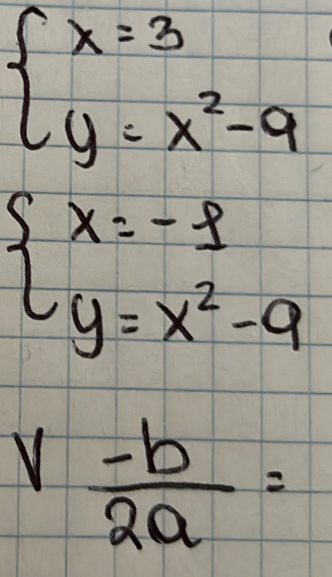 { x = 3
y = x² - 9
{ x = - 1
y = x² - 9
V -b/2a =